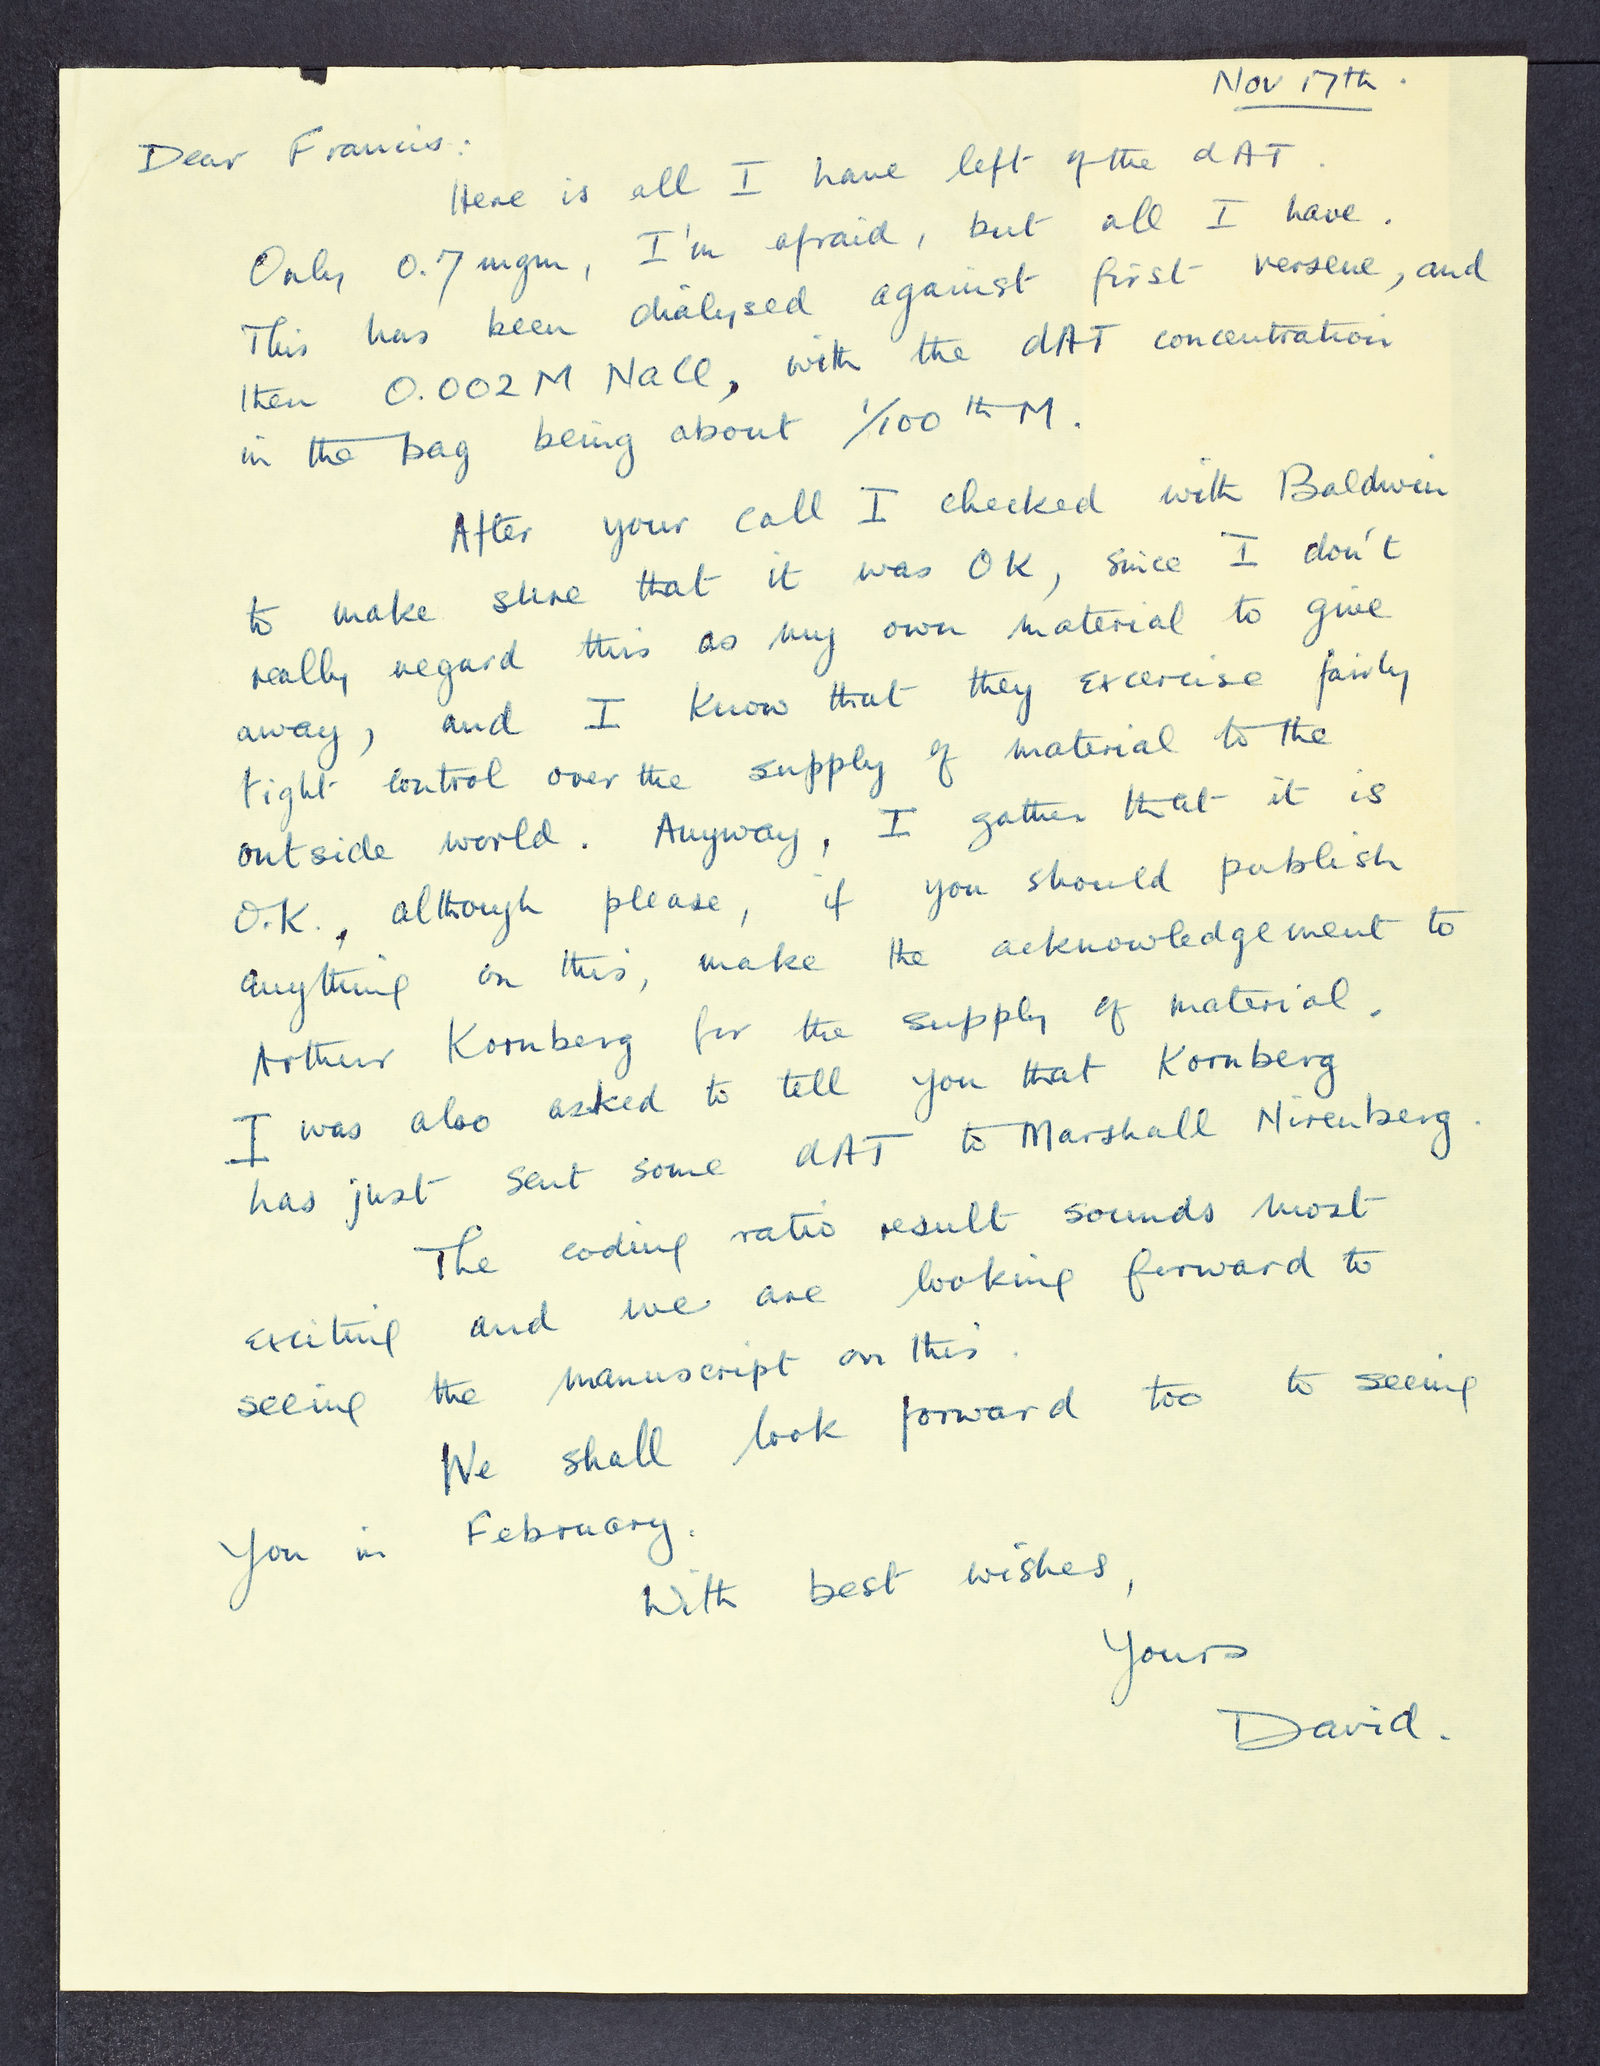 Nov 17th.
Dear Francis:
Here is all I have left of the dAT.
Only 0.7 mgm, I'm afraid, but all I have.
This has been dialysed against first versene, and
then 0.002 M NaCl, with the dAT concentration
in the bag being about 1/100th M.
After your call I checked with Baldwin
to make sure that it was OK, since I don't
really regard this as my own material to give
away, and I know that they excercise fairly
tight control over the supply of material to the
outside world. Anyway, I gather that it is
O.K., although please, if you should publish
anything on this, make the acknowledgement to
Arthur Kornberg for the supply of material.
I was also asked to tell you that Kornberg
has just sent some dAT to Marshall Nirenberg.
The coding ratio result sounds most
exciting and we are looking forward to
seeing the manuscript on this.
We shall look forward too to seeing
you in February.
With best wishes,
Yours
David.